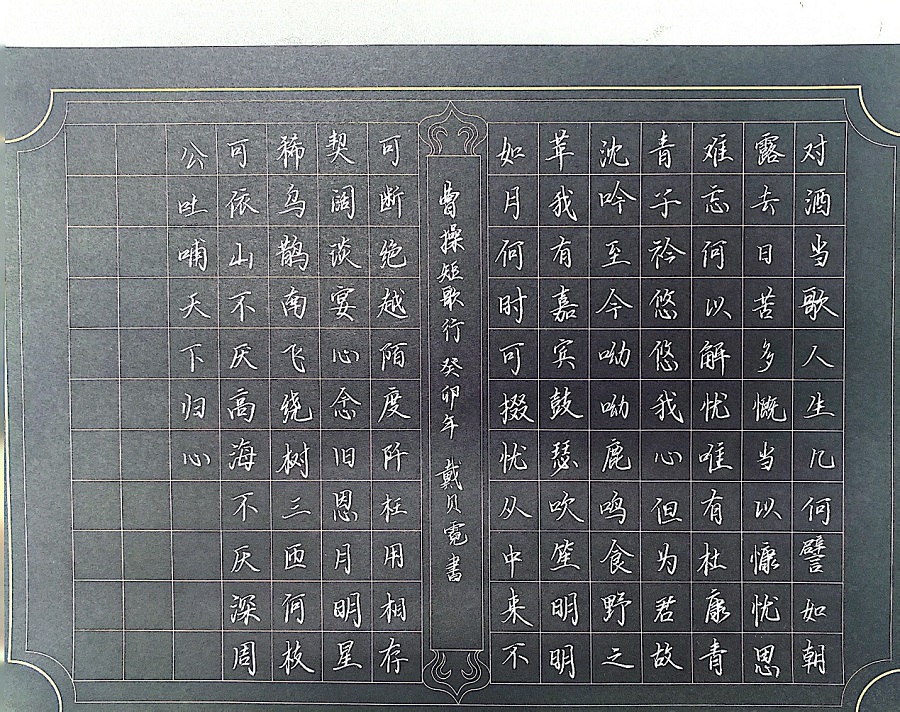 对酒当歌人生几何譬如朝
露去日苦多慨当以慷忧思
难忘何以解忧唯有杜康青
青子衿悠悠我心但为君故
沈吟至今呦呦鹿鸣食野之
苹我有嘉宾鼓瑟吹笙明明
如月何时可掇忧从中来不
曹操短歌行 癸卯年 戴贝霓書
可断绝越陌度阡枉用相存
契阔谈宴心念旧恩月明星
稀鸟鹊南飞绕树三匝何枝
可依山不厌高海不厌深周
公吐哺天下归心